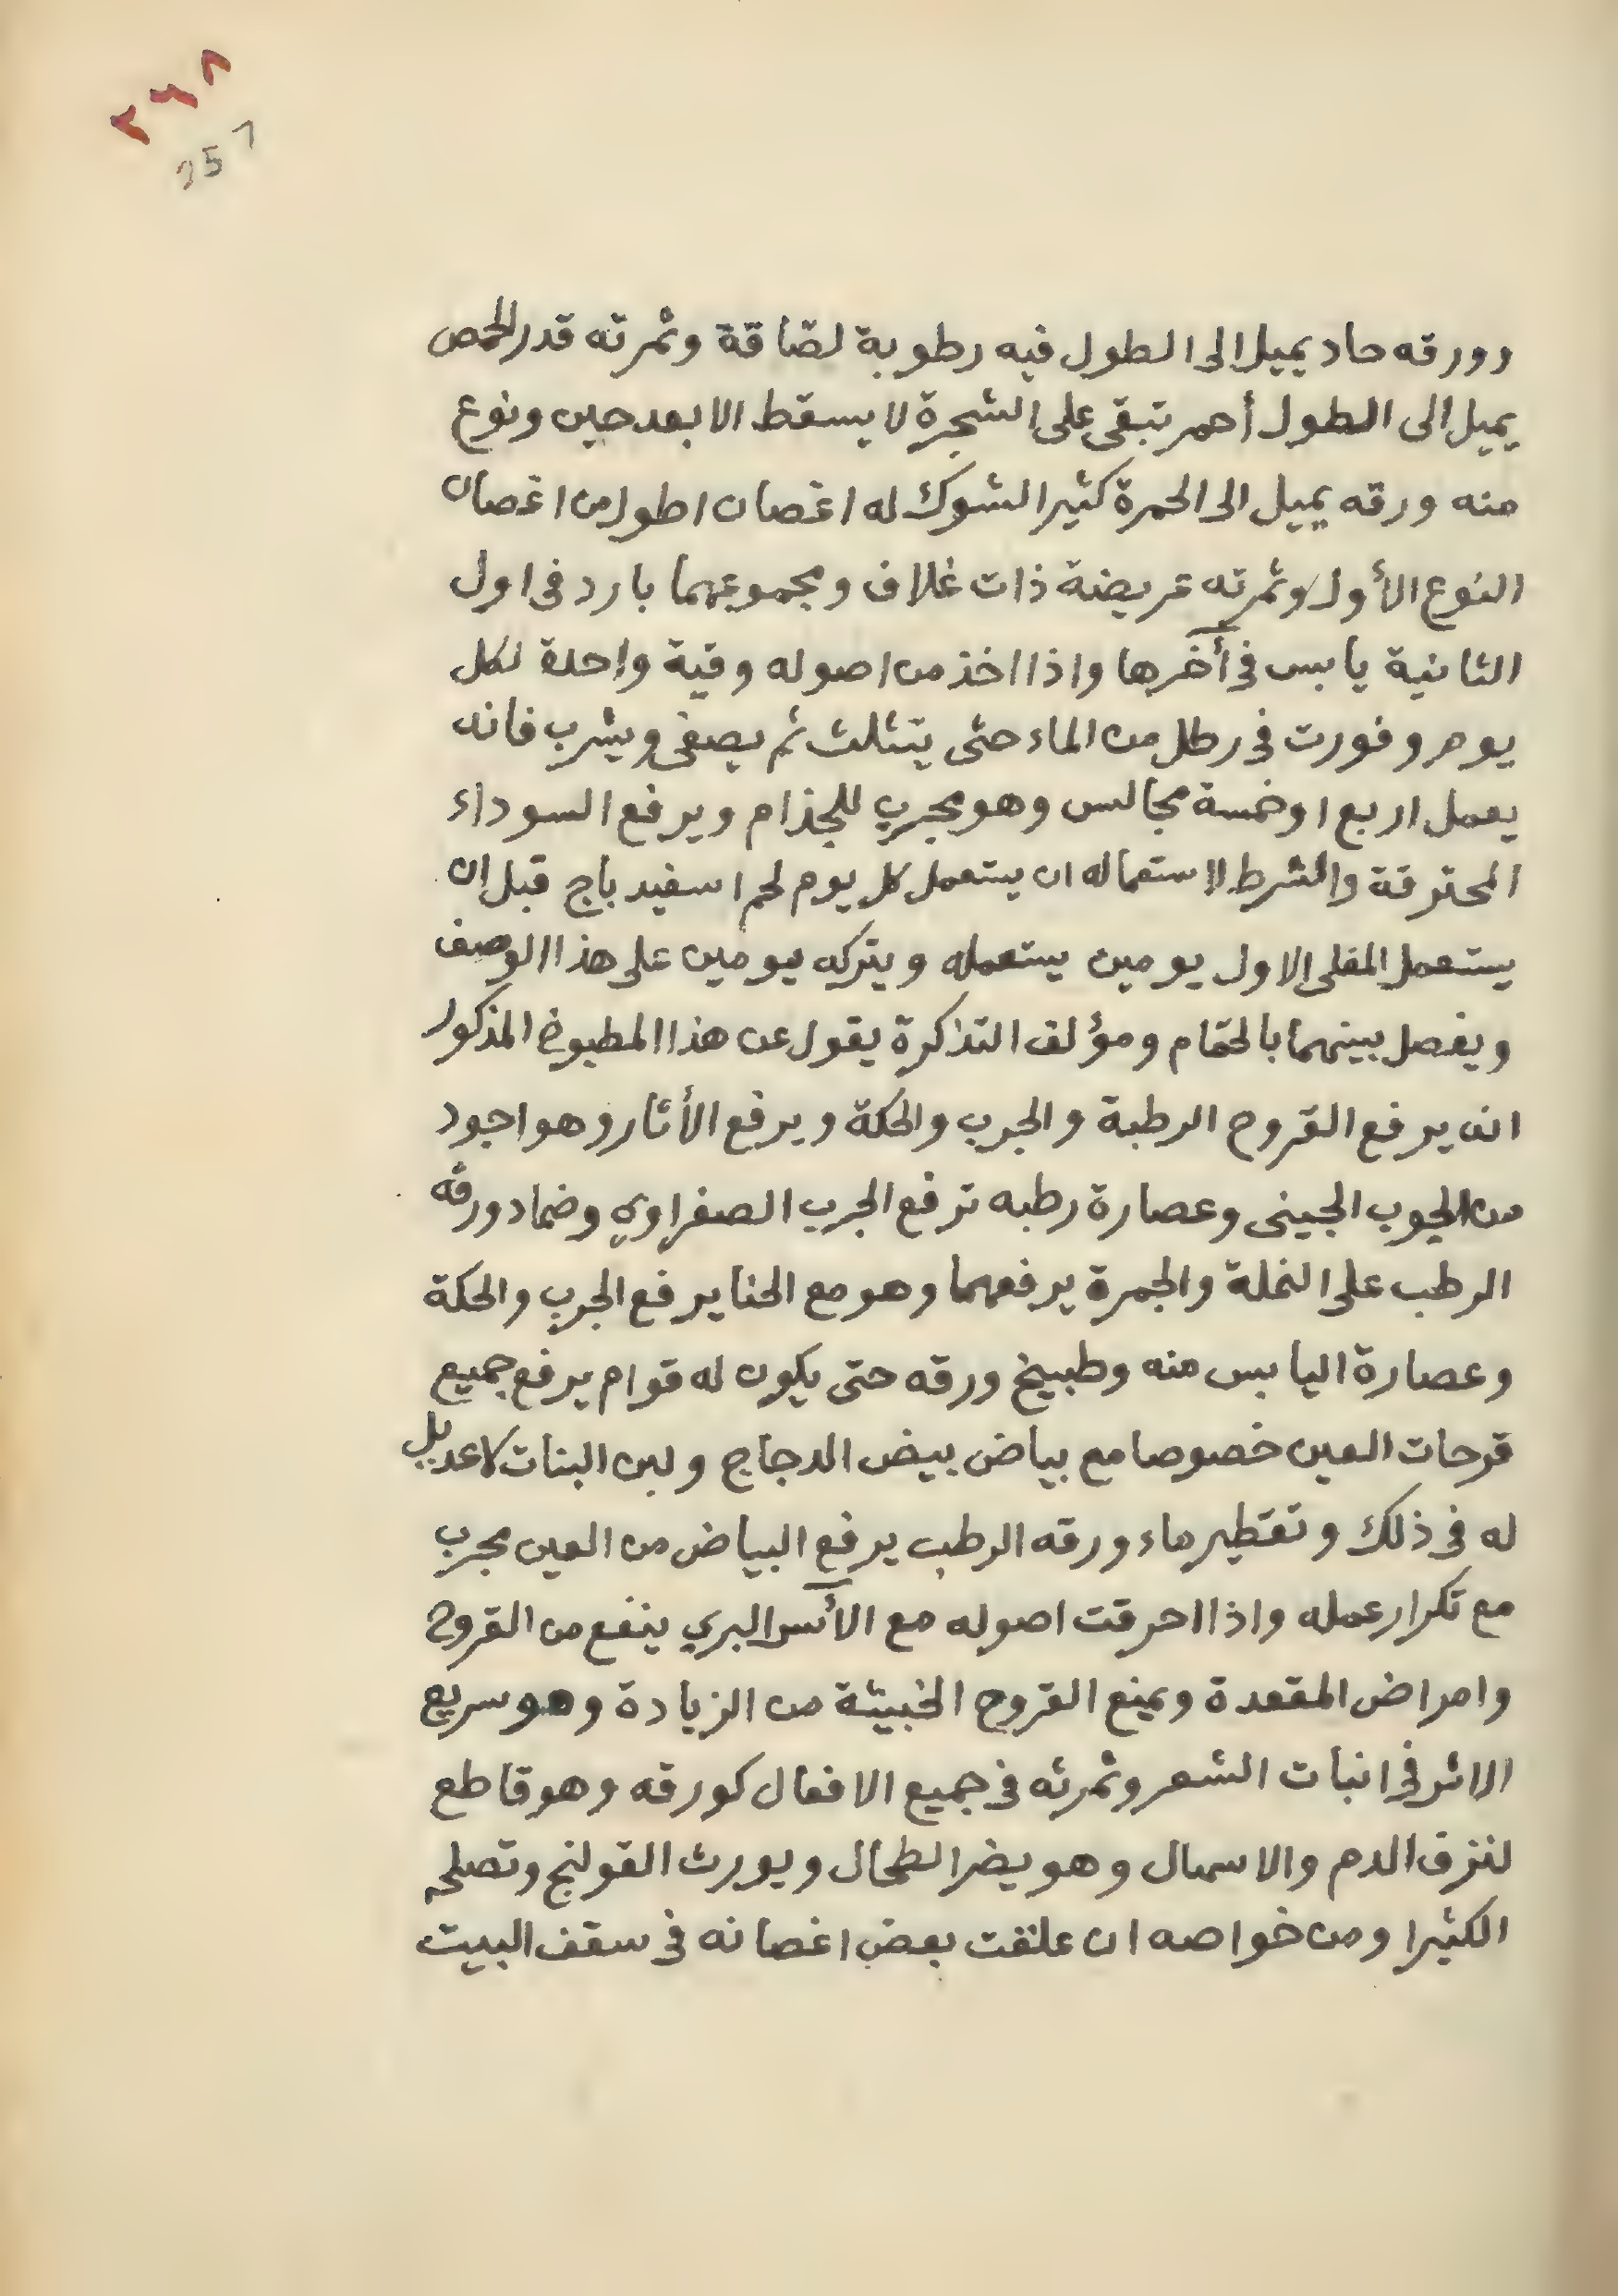 ٢٦٨
257
وورقه حاد يميل الى الطول فيه رطوبة لصّاقة وثمرته قدر الحمص
يميل الى الطول أحمر تبقى على الشجرة لا يسقط الا بعد حين ونوع
منه ورقه يميل الى الحمرة كثير الشوك له اغصان اطول من اغصان
النوع الأول وثمرته عريضة ذات غلاف ومجموعهما بارد في اول
الثانية يابس في آخرها واذا اخذ من اصوله وقية واحدة لكل
يوم وفورت في رطل من الماء حتى يتثلث ثم يصفى ويشرب فانه
يعمل اربع او خمسة مجالس وهو مجرب للجذام ويرفع السوداء
المحترقة والشرط لاستعماله ان يستعمل كل يوم لحم اسفيد باج قبل ان
يستعمل المغلى الاول يومين يستعمله ويتركه يومين على هذا الوصف
ويفصل بينهما بالحمّام ومؤلف التذكرة يقول عن هذا المطبوخ المذكور
انه يرفع القروح الرطبة والجرب والحكة ويرفع الأثار وهو اجود
من الجوب الجيني وعصارة رطبه ترفع الجرب الصفراوي وضماد ورقه
الرطب على النملة والجمرة يرفعهما وهو مع الحنا يرفع الجرب والحكة
وعصارة اليابس منه وطبيخ ورقه حتى يكون له قوام يرفع جميع
قرحات العين خصوصا مع بياض بيض الدجاج ولبن البنات لا عديل
له في ذلك وتقطير ماء ورقه الرطب يرفع البياض من العين مجرب
مع تكرار عمله واذا احرقت اصوله مع الآس البري ينفع من القروح
وامراض المقعدة ويمنع القروح الخبيثة من الزيادة وهو سريع
الاثر في انبات الشعر وثمرته في جميع الافعال كورقه وهو قاطع
لنزف الدم والاسهال وهو يضر الطحال ويورث القولنج وتصلحه
الكثيرا ومن خواصه ان علقت بعض اغصانه في سقف البيت